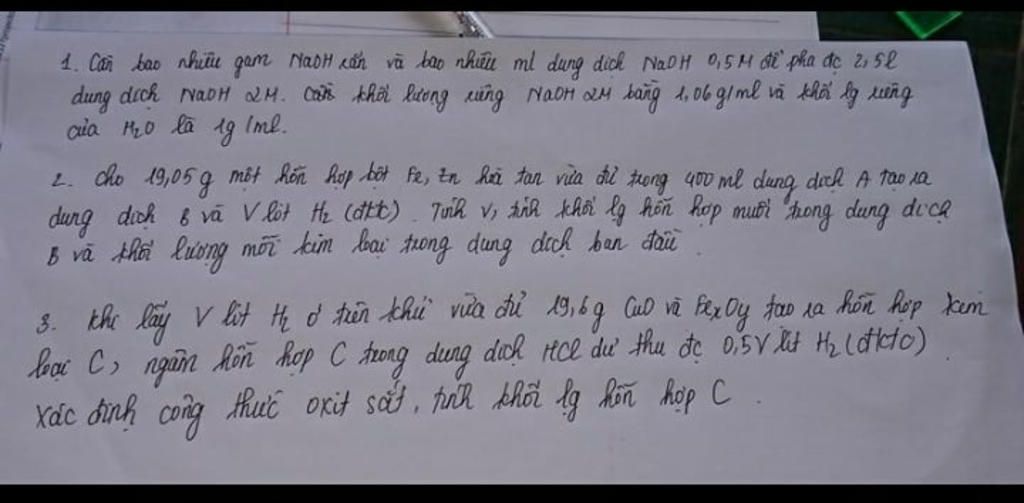 1. Cần bao nhiêu gam NaOH rắn và bao nhiêu ml dung dịch NaOH 0,5M để pha đc 2,5l
dung dịch NaOH 2M. Cần khối lượng riêng NaOH 2M bằng 1,06g/ml và khối lg riêng
của H₂O là 1g/ml.
2. Cho 19,05g một hỗn hợp bột Fe, Zn hoà tan vừa đủ trong 400 ml dung dịch A tạo ra
dung dịch B và V lít H₂ (đktc). Tính V, tính khối lg hỗn hợp muối trong dung dịch
B và khối lượng mỗi kim loại trong dung dịch ban đầu.
3. Khi lấy V lít H₂ ở trên khử vừa đủ 19,6g CuO và FexOy tạo ra hỗn hợp kim
loại C, ngâm hỗn hợp C trong dung dịch HCl dư thu đc 0,5V lít H₂ (đktc).
Xác định công thức oxit sắt, tính khối lg hỗn hợp C.